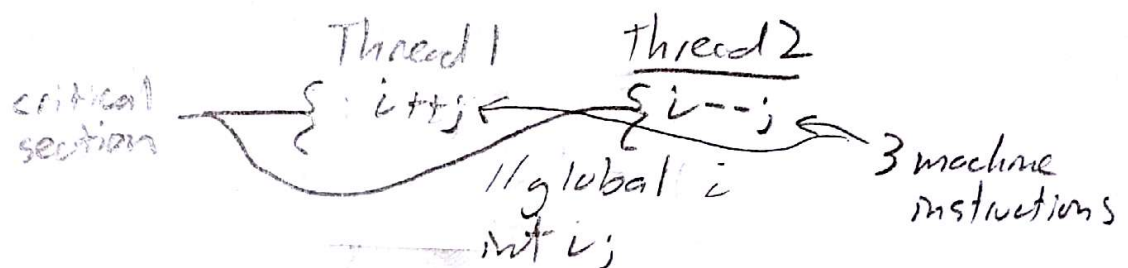 Thread 1
Thread 2
critical
section
{ i++;
{ i--;
3 machine
instructions
// global i
int i;